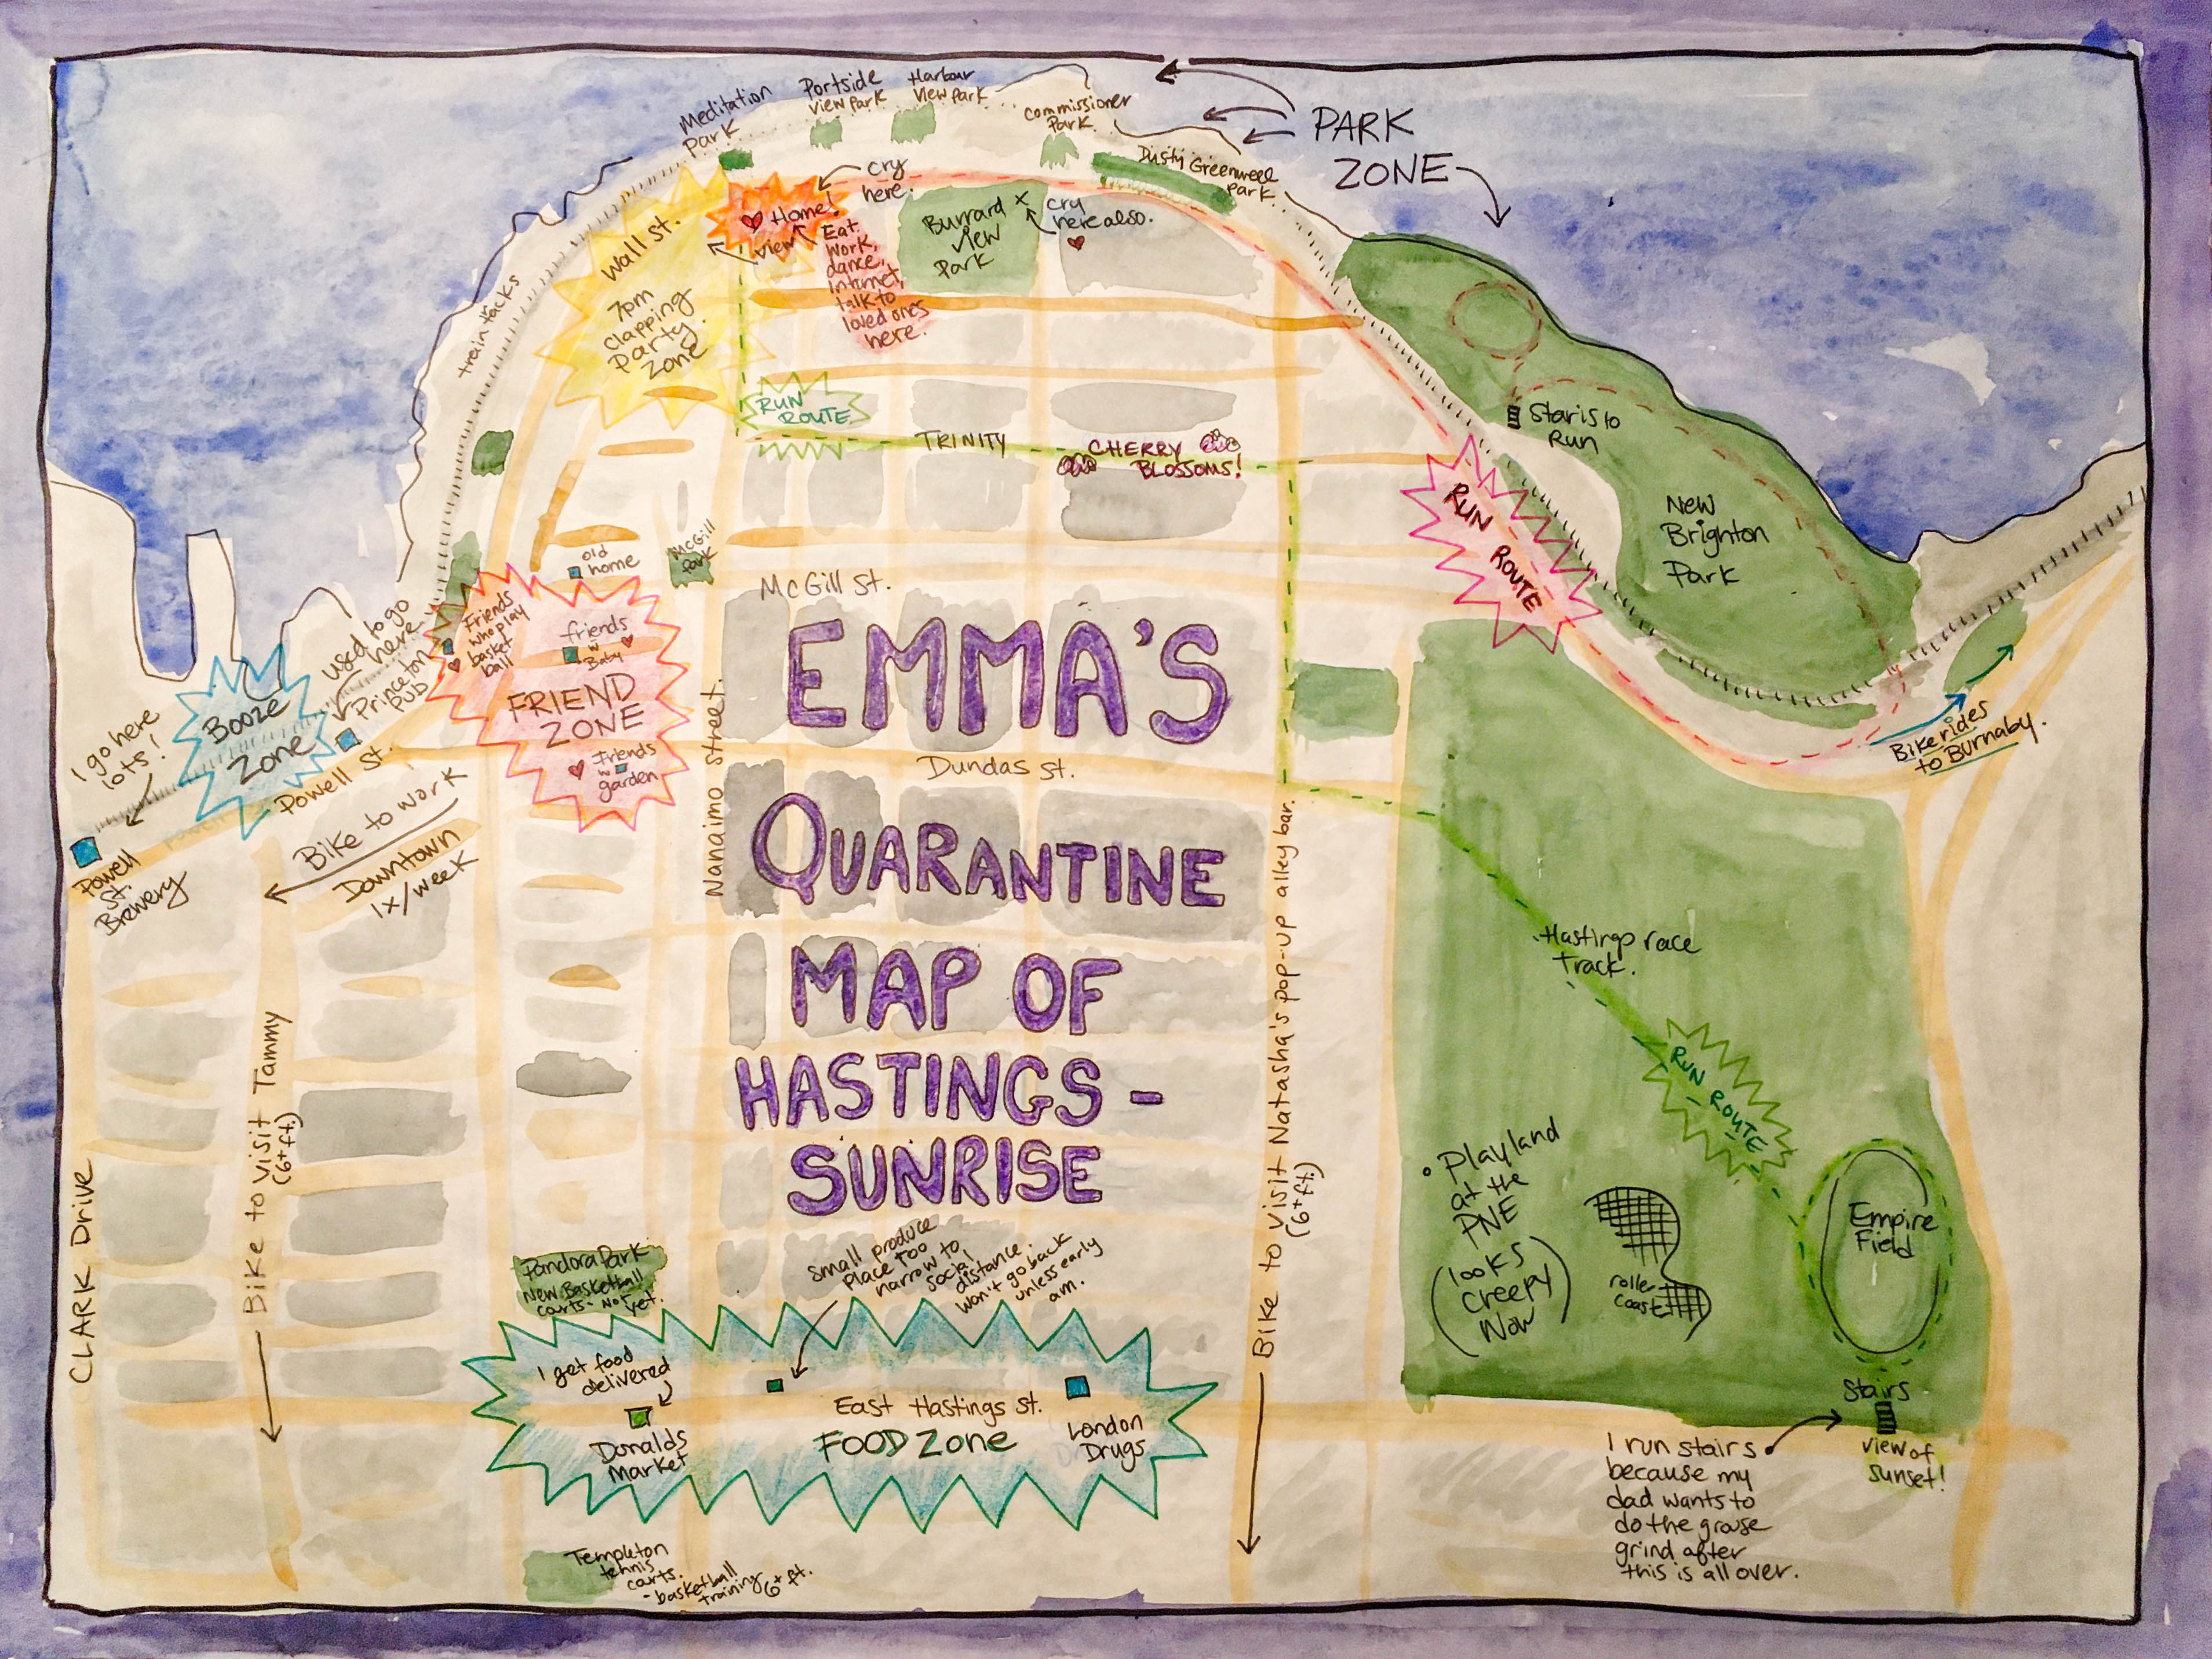 Meditation
Park
Portside
View Park
Harbour
View Park
Commissioner
Park
Dusty Greenwell
Park
PARK
ZONE
cry
here.
Home!
view
Eat,
work,
dance,
internet,
talk to
loved ones
here.
Burrard
View
Park
x
cry
here also.
Wall St.
7pm
Clapping
Party
Zone
train tracks
RUN
ROUTE
TRINITY
CHERRY
BLOSSOMS!
Staris to
Run
New
Brighton
Park
RUN ROUTE
old
home
McGill
Park
McGill St.
Friends
who play
basket
ball
friends
w
Baby
FRIEND
ZONE
Friends
w
garden
used to go
here
Princeton
PUB
Booze
Zone
I go here
lots!
Powell
St.
Brewery
Powell St.
Bike to work
Downtown
1x/week
Nanaimo street.
EMMA'S
Dundas St.
QUARANTINE
MAP OF
HASTINGS -
SUNRISE
Bike rides
to Burnaby.
Hastings race
track.
RUN ROUTE
Playland
at the
PNE
(looks
creepy
now)
roller
coaster
Empire
Field
Stairs
view of
sunset!
I run stairs
because my
dad wants to
do the grouse
grind after
this is all over.
CLARK Drive
Bike to visit Tammy
(6+ft.)
Bike to visit Natasha's pop-up alley bar.
(6+ft.)
Pandora Park
New Basketball
courts - not yet.
small produce
place too
narrow to
social
distance.
won't go back
unless early
am.
I get food
delivered
Donalds
Market
East Hastings St.
FOOD ZONE
London
Drugs
Templeton
tennis
courts.
- basketball
training 6+ft.